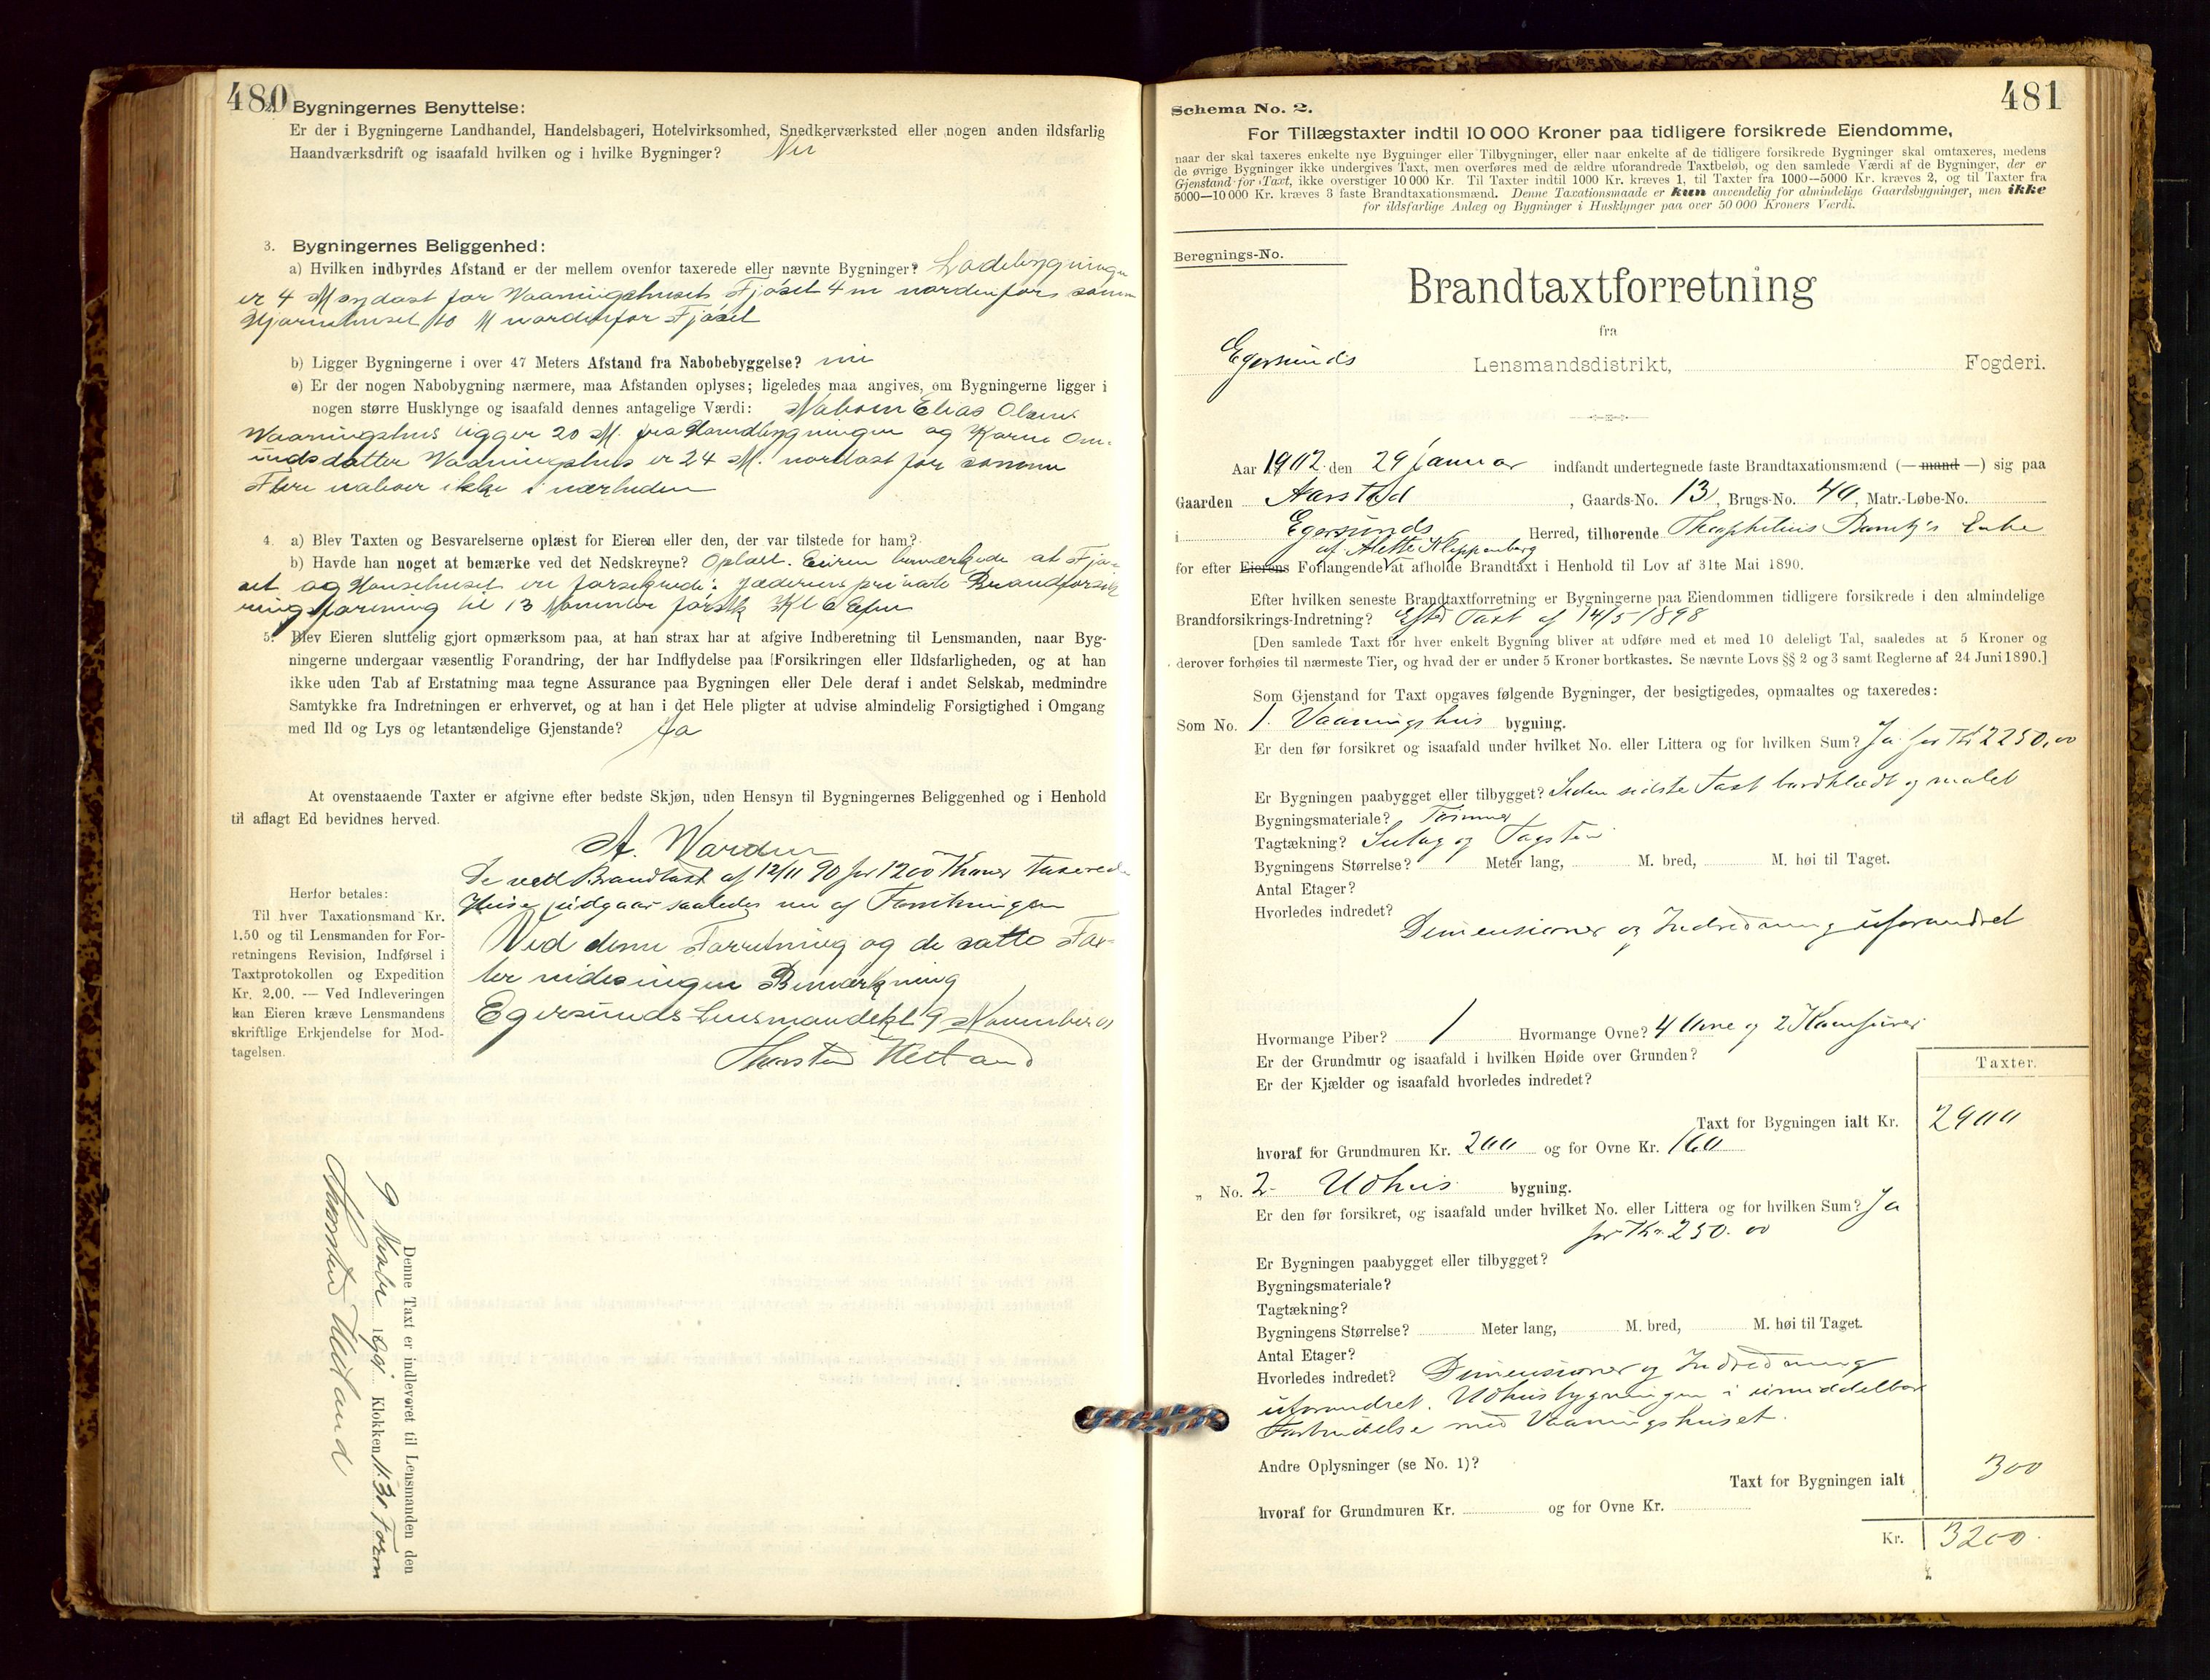 480
2. Bygningernes Benyttelse:
Er der i Bygningerne Landhandel, Handelsbageri, Hotelvirksomhed, Snedkerværksted eller nogen anden ildsfarlig
Haandværksdrift og isaafald hvilken og i hvilke Bygninger? Nei
3. Bygningernes Beliggenhed:
a) Hvilken indbyrdes Afstand er der mellem ovenfor taxerede eller nævnte Bygninger? Ladebygningen
er 4 M sydøst for Vaaningshuset, Fjøset 4 m nordenfor samme
Hjørnehuset 10 M nordenfor Fjøset
b) Ligger Bygningerne i over 47 Meters Afstand fra Nabobebyggelse? nei
c) Er der nogen Nabobygning nærmere, maa Afstanden oplyses; ligeledes maa angives, om Bygningerne ligger i
nogen større Husklynge og isaafald dennes antagelige Værdi: Naboen Elias Olsens
Vaaningshus ligger 20 M. fra Hovedbygningen og Karen Om-
undsdatter Vaaningshus er 24 M. nordøst for samme
Flere naboer ikke i nærheden
4. a) Blev Taxten og Besvarelserne oplæst for Eieren eller den, der var tilstede for ham?
b) Havde han noget at bemærke ved det Nedskrevne? Oplæst. Eieren bemærkede at Fjø-
set og Hønsehuset er forsikrede i Jæderens private Brandforsik
ringsforening til 13 November førstk Kl 6 Efm
5. Blev Eieren sluttelig gjort opmærksom paa, at han strax har at afgive Indberetning til Lensmanden, naar Byg-
ningerne undergaar væsentlig Forandring, der har Indflydelse paa Forsikringen eller Ildsfarligheden, og at han
ikke uden Tab af Erstatning maa tegne Assurance paa Bygningen eller Dele deraf i andet Selskab, medmindre
Samtykke fra Indretningen er erhvervet, og at han i det Hele pligter at udvise almindelig Forsigtighed i Omgang
med Ild og Lys og letantændelige Gjenstande? Ja
At ovenstaaende Taxter er afgivne efter bedste Skjøn, uden Hensyn til Bygningernes Beliggenhed og i Henhold
til aflagt Ed bevidnes herved.
A. Warden
De ved Brandtaxt af 12/11 90 for 1200 Kroner taxerede
Huse udgaar saaledes nu af Forsikringen
Ved denne Forretning og de satte Tax-
ter vides ingen Bemærkning
Egersunds Lensmandskt 9 November 01
Thorsten Hetland
Herfor betales:
Til hver Taxationsmand Kr.
1.50 og til Lensmanden for For-
retningens Revision, Indførsel i
Taxtprotokollen og Expedition
Kr. 2.00. — Ved Indleveringen
kan Eieren kræve Lensmandens
skriftlige Erkjendelse for Mod-
tagelsen.
Denne Taxt er indleveret til Lensmanden den
9 Novbr 1901 Klokken 11.30 Form
Thorsten Hetland
481
Schema No. 2.
For Tillægstaxter indtil 10 000 Kroner paa tidligere forsikrede Eiendomme,
naar der skal taxeres enkelte nye Bygninger eller Tilbygninger, eller naar enkelte af de tidligere forsikrede Bygninger skal omtaxeres, medens
de øvrige Bygninger ikke undergives Taxt, men overføres med de ældre uforandrede Taxtbeløb, og den samlede Værdi af de Bygninger, der er
Gjenstand for Taxt, ikke overstiger 10 000 Kr. Til Taxter indtil 1000 Kr. kræves 1, til Taxter fra 1000—5000 Kr. kræves 2, og til Taxter fra
5000—10 000 Kr. kræves 3 faste Brandtaxationsmænd. Denne Taxationsmaade er kun anvendelig for almindelige Gaardsbygninger, men ikke
for ildsfarlige Anlæg og Bygninger i Husklynger paa over 50 000 Kroners Værdi.
Beregnings-No.
Brandtaxtforretning
fra
Egersunds Lensmandsdistrikt, Fogderi.
Aar 1902 den 29 Januar indfandt undertegnede faste Brandtaxationsmænd (— mand —) sig paa
Gaarden Aarstad, Gaards-No. 13, Brugs-No. 40, Matr.-Løbe-No.
i Egersunds Herred, tilhørende Theophilius Bamtz's Enke
af Alette Kleppenberg
for efter Eierens Forlangende at afholde Brandtaxt i Henhold til Lov af 31te Mai 1890.
Efter hvilken seneste Brandtaxtforretning er Bygningerne paa Eiendommen tidligere forsikrede i den almindelige
Brandforsikrings-Indretning? Efter Taxt af 14/5-1898
[Den samlede Taxt for hver enkelt Bygning bliver at udføre med et med 10 deleligt Tal, saaledes at 5 Kroner og
derover forhøies til nærmeste Tier, og hvad der er under 5 Kroner bortkastes. Se nævnte Lovs §§ 2 og 3 samt Reglerne af 24 Juni 1890.]
Som Gjenstand for Taxt opgaves følgende Bygninger, der besigtigedes, opmaaltes og taxeredes:
Som No. 1. Vaaningshus bygning.
Er den før forsikret og isaafald under hvilket No. eller Littera og for hvilken Sum? Ja for Kr 2250,00
Er Bygningen paabygget eller tilbygget? Siden sidste Taxt bordklædt og malet
Bygningsmateriale? Tømmer
Tagtækning? Sutag og Tagsten
Bygningens Størrelse? Meter lang, M. bred, M. høi til Taget.
Antal Etager?
Hvorledes indredet? Dimensioner og Indredning uforandret
Hvormange Piber? 1 Hvormange Ovne? 4 Ovne og 2 Komfurer
Er der Grundmur og isaafald i hvilken Høide over Grunden?
Er der Kjælder og isaafald hvorledes indredet?
Taxter.
Taxt for Bygningen ialt Kr. 2900
hvoraf for Grundmuren Kr. 200 og for Ovne Kr. 160
" No. 2 Udhus bygning.
Er den før forsikret, og isaafald under hvilket No. eller Littera og for hvilken Sum? Ja
for Kr. 250.00
Er Bygningen paabygget eller tilbygget?
Bygningsmateriale?
Tagtækning?
Bygningens Størrelse? Meter lang, M. bred, M. høi til Taget.
Antal Etager?
Hvorledes indredet? Dimensioner og Indredning
uforandret. Udhusbygningen i umiddelbar
Forbindelse med Vaaningshuset.
Andre Oplysninger (se No. 1)?
Taxt for Bygningen ialt 300
hvoraf for Grundmuren Kr. og for Ovne Kr.
Kr. 3200